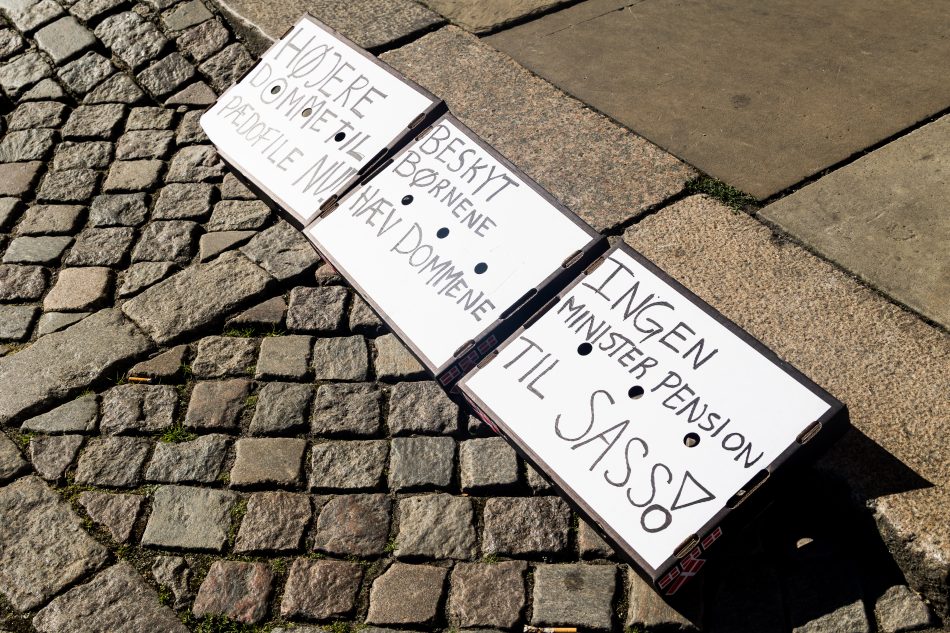 HØJERE
DOMME TIL
PÆDOFILE NU!
BESKYT
BØRNENE
HÆV DOMMENE
INGEN
MINISTER PENSION
TIL SASS!